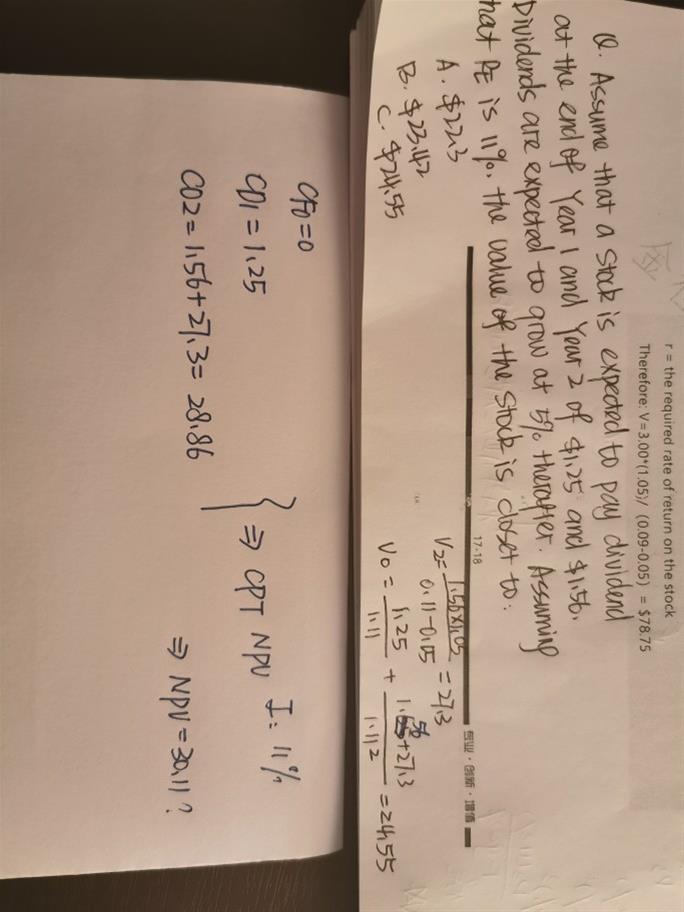 r = the required rate of return on the stock
Therefore: V=3.00*(1.05)/ (0.09-0.05) = $78.75
Q. Assume that a stock is expected to pay dividend
at the end of Year 1 and Year 2 of $1.25 and $1.56.
Dividends are expected to grow at 5% therafter. Assuming
that RE is 11%. the value of the stock is closet to:
A. $22.3
B. $23.42
C. $24.55
17-18
专业·创新·增值
V2= 1.56×1.05 / 0.11-0.05 = 27.3
V0 = 1.25 / 1.11 + 1.56+27.3 / 1.112 = 24.55
CF0=0
C01=1.25
C02=1.56+27.3=28.86
} ⇒ CPT NPV I=11%
⇒ NPV=30.11?